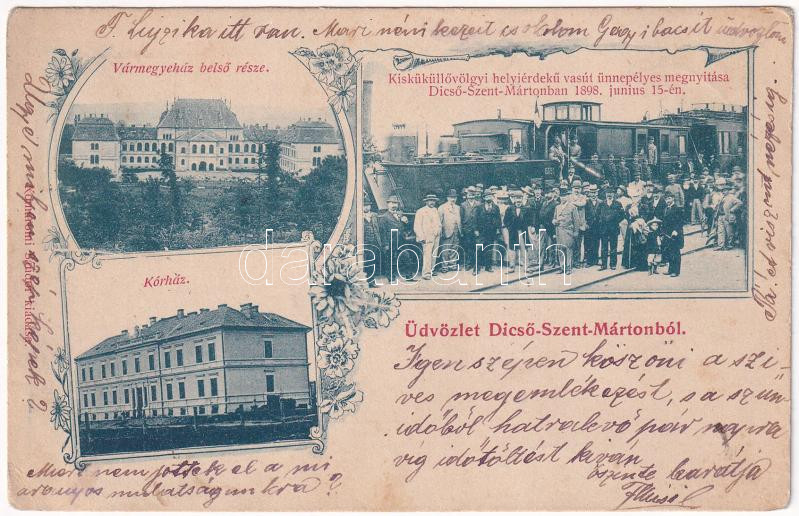 F. Lujzika itt van. Mari néni kezeit csókolom Gagyi bácsit üdvözlöm
Vármegyeház belső része.
Kisküküllővölgyi helyiérdekű vasút ünnepélyes megnyitása
Dicső-Szent-Mártonban 1898. junius 15-én.
darabanth
Kórház.
Üdvözlet Dicső-Szent-Mártonból.
Igen szépen köszöni a szi-
ves megemlékezést, s a szün-
időből hatralevő pár napra
víg időtöltést kíván
őszinte barátja
Mari nem jöttek el a mi
aranyos mulatságunkra?
kiadása